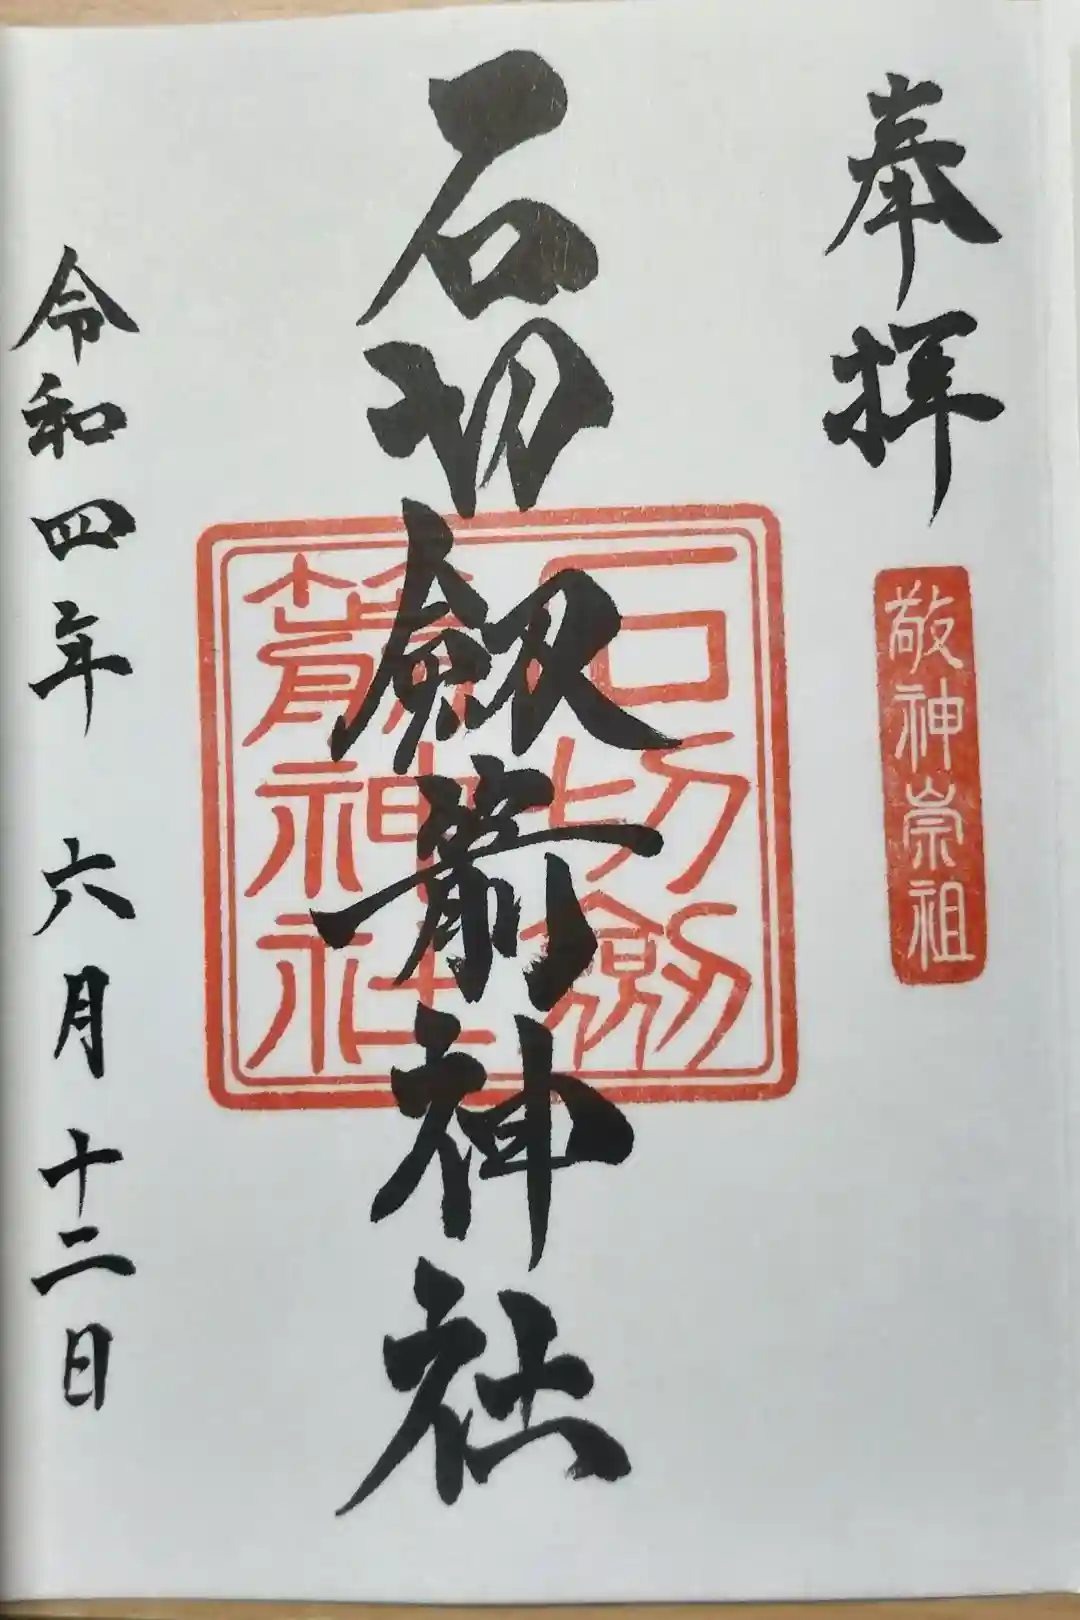 奉拝
敬神崇祖
石切劔箭神社
石切劔
箭神社
令和四年 六月十二日